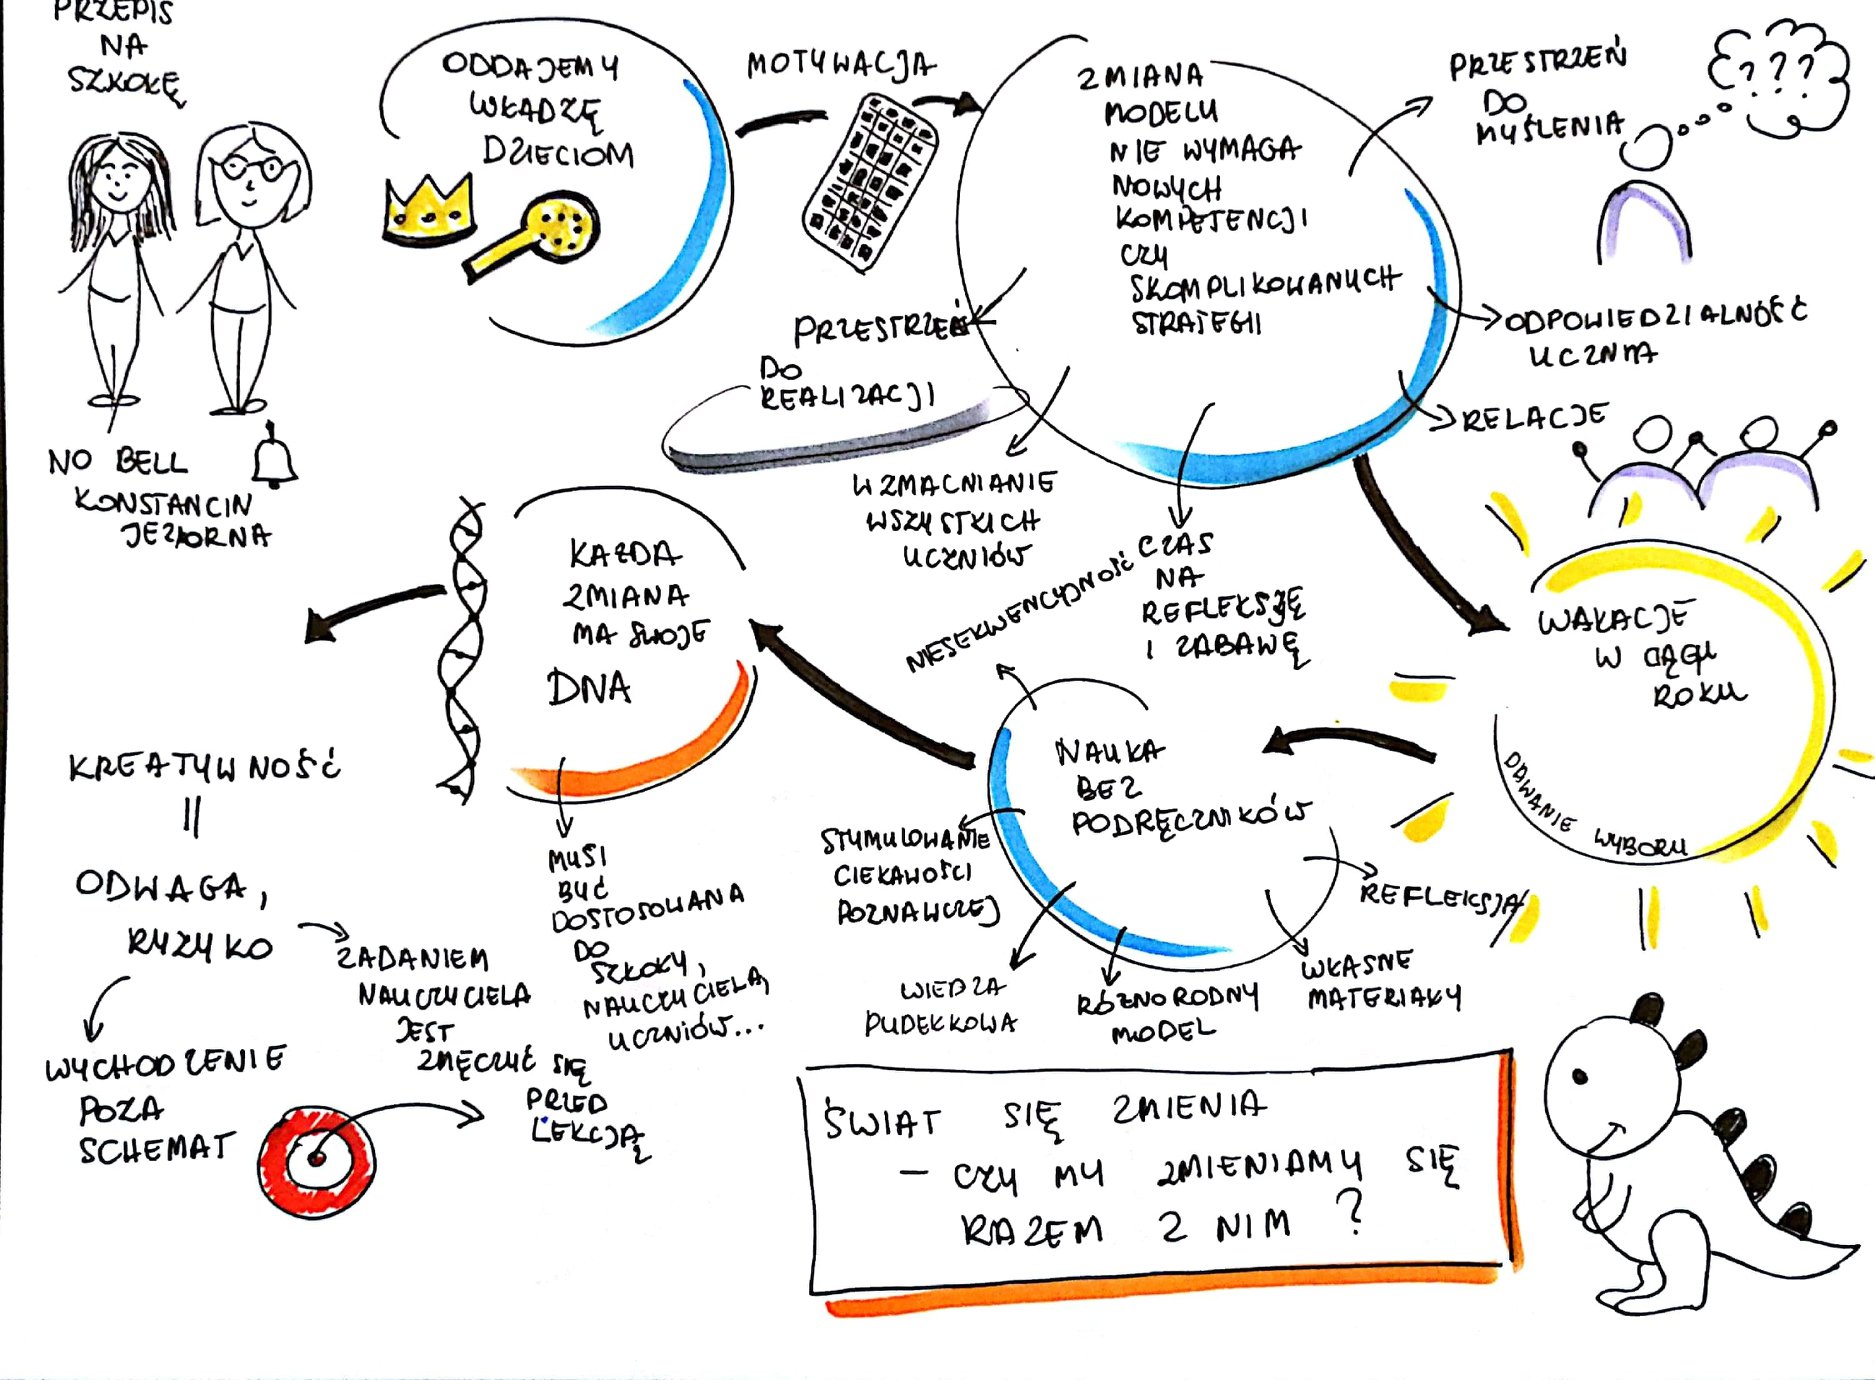 PRZEPIS
NA
SZKOŁĘ
NO BELL
KONSTANCIN
JEZIORNA
ODDAJEMY
WŁADZĘ
DZIECIOM
MOTYWACJA
ZMIANA
MODELU
NIE WYMAGA
NOWYCH
KOMPETENCJI
CZY
SKOMPLIKOWANYCH
STRATEGII
PRZESTRZEŃ
DO
MYŚLENIA
???
ODPOWIEDZIALNOŚĆ
UCZNIA
RELACJE
PRZESTRZEŃ
DO
REALIZACJI
WZMACNIANIE
WSZYSTKICH
UCZNIÓW
CZAS
NA
REFLEKSJĘ
I ZABAWĘ
WAKACJE
W CIĄGU
ROKU
DAWANIE WYBORU
NAUKA
BEZ
PODRĘCZNIKÓW
NIESEKWENCYJNOŚĆ
STYMULOWANIE
CIEKAWOŚCI
POZNAWCZEJ
WIEDZA
PUDEŁKOWA
RÓŻNORODNY
MODEL
WŁASNE
MATERIAŁY
REFLEKSJA
KAŻDA
ZMIANA
MA SWOJE
DNA
MUSI
BYĆ
DOSTOSOWANA
DO
SZKOŁY,
NAUCZYCIELA,
UCZNIÓW...
KREATYWNOŚĆ
=
ODWAGA,
RYZYKO
WYCHODZENIE
POZA
SCHEMAT
ZADANIEM
NAUCZYCIELA
JEST
ZMĘCZYĆ SIĘ
PRZED
LEKCJĄ
ŚWIAT SIĘ ZMIENIA
- CZY MY ZMIENIAMY SIĘ
RAZEM Z NIM ?